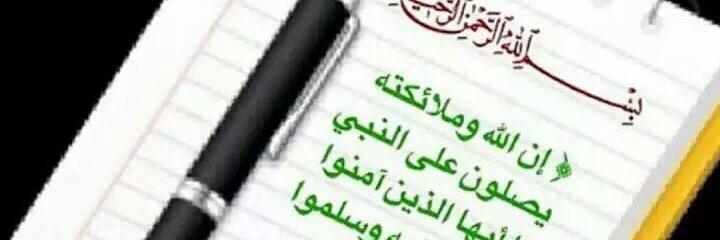 بسم الله الرحمن الرحيم
﴿ إن الله وملائكته
يصلون على النبي
أيها الذين آمنوا
وسلموا